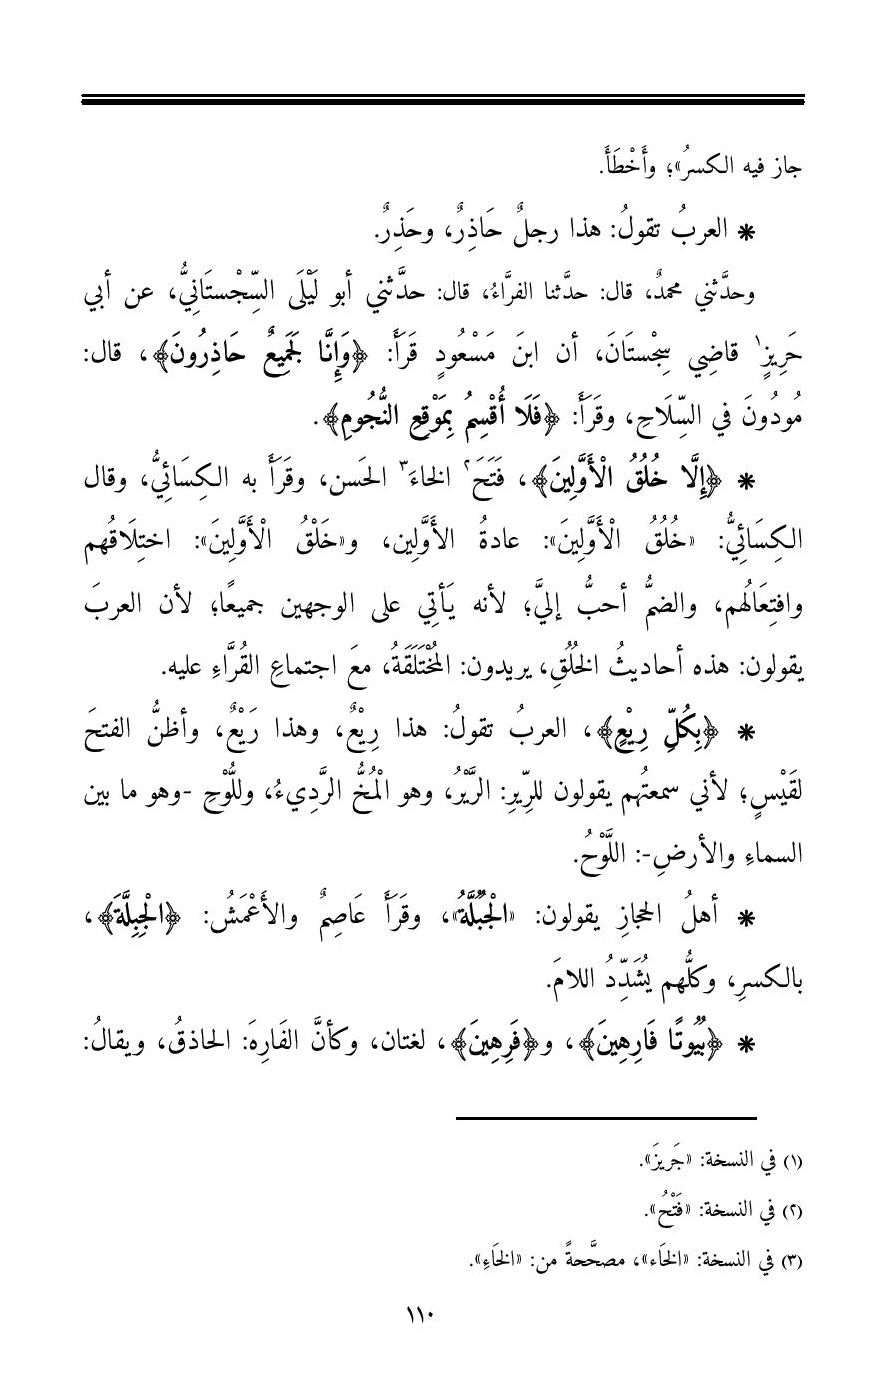 جاز فيه الكسرُ»؛ وأَخْطَأَ.
* العربُ تقولُ: هذا رجلٌ حَاذِرٌ، وحَذِرٌ.
وحدَّثني محمدٌ، قال: حدَّثنا الفرَّاءُ، قال: حدَّثني أبو لَيْلَى السِّجْستَانِيُّ، عن أبي
حَرِيزٍ١ قاضِي سِجْستَانَ، أن ابنَ مَسْعُودٍ قَرَأَ: ﴿وَإِنَّا لَجَمِيعٌ حَاذِرُونَ﴾، قال:
مُودُونَ في السِّلَاحِ، وقَرَأَ: ﴿فَلَا أُقْسِمُ بِمَوْقِعِ النُّجُومِ﴾.
* ﴿إِلَّا خُلُقُ الْأَوَّلِينَ﴾، فَتَحَ٢ الخاءَ٣ الحَسن، وقَرَأَ به الكِسَائِيُّ، وقال
الكِسَائِيُّ: «خُلُقُ الْأَوَّلِينَ»: عادةُ الأَوَّلين، و«خَلْقُ الْأَوَّلِينَ»: اختِلَاقُهم
وافتِعَالُهم، والضمُّ أحبُّ إليَّ؛ لأنه يَأتِي على الوجهين جميعًا؛ لأن العربَ
يقولون: هذه أحاديثُ الخُلُقِ، يريدون: المُخْتَلَقَةُ، معَ اجتماعِ القُرَّاءِ عليه.
* ﴿بِكُلِّ رِيْعٍ﴾، العربُ تقولُ: هذا رِيْعٌ، وهذا رَيْعٌ، وأظنُّ الفتحَ
لقَيْسٍ؛ لأني سمعتُهم يقولون للرِّيرِ: الرَّيْرُ، وهو الْمُخُّ الرَّدِيءُ، وللُّوْحِ -وهو ما بين
السماءِ والأرضِ-: اللَّوْحُ.
* أهلُ الحجازِ يقولون: «الْجُبُلَّةُ»، وقَرَأَ عَاصِمٌ والأَعْمَشُ: ﴿الْجِبِلَّةَ﴾،
بالكسرِ، وكلُّهم يُشَدِّدُ اللامَ.
* ﴿بُيُوتًا فَارِهِينَ﴾، و﴿فَرِهِينَ﴾، لغتان، وكأنَّ الفَارِهَ: الحاذقُ، ويقالُ:
(١) في النسخة: «جَرِيزَ».
(٢) في النسخة: «فَتْحُ».
(٣) في النسخة: «الخَاء»، مصحَّحةً من: «الخَاءِ».
١١٠